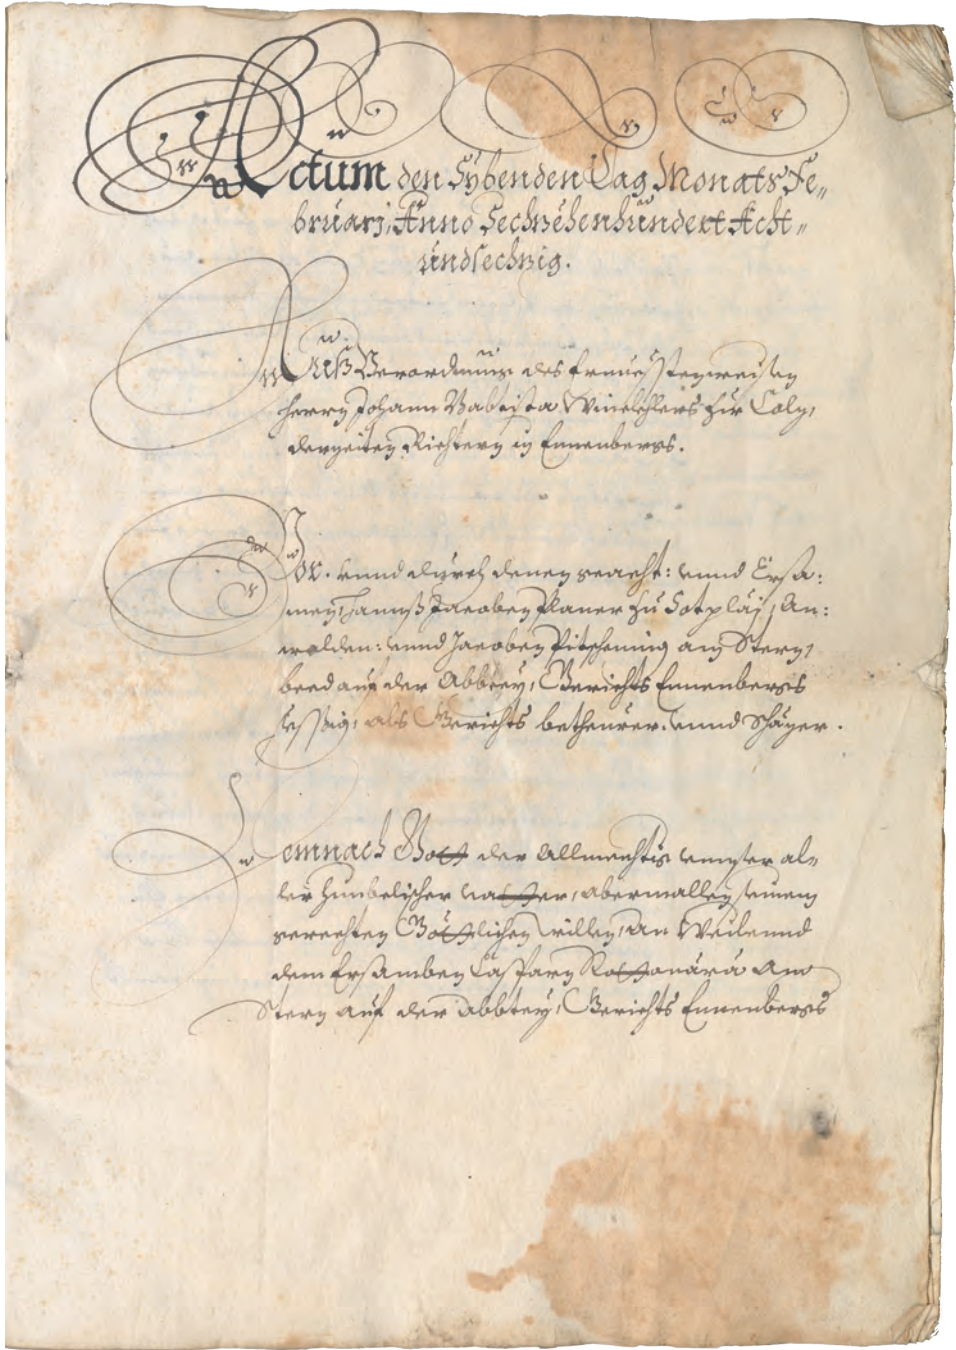 Actum den Sÿbenden Tag Monats Fe„
bruarj, Anno Sechzëhenhundert Acht„
undsechzig.
Auß Verordnung des Ernuesstenweisen
Herrn Johann Babtista Winckhlers zur Coln,
derzeiten Richtern in Ennenbergs.
Vor. vnnd durch denen geacht: vnnd Ersa:
men, Hannß Jacoben Planer zu Sotpläj, An:
walden: vnnd Jacoben Pitscheinig am Stern,
beed auf der Abbteÿ, Gerichts Ennenbergs
sesßig, als Gerichts betheurer. vnnd Schäzer.
Demnach Gott der Allmechtig vnnser al„
ler himbelischer vatter, abermallen seinem
gerechten Göttlichen willen, an Weilennd
dem Ersamben Casparn Rottonara am
Stern auf der Abbteÿ, Gerichts Ennenbergs